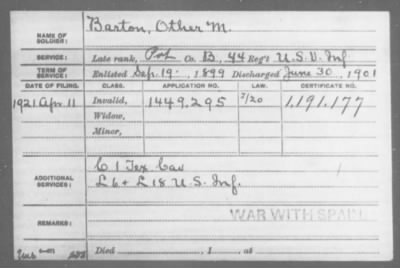 NAME OF SOLDIER: Barton, Other M.
SERVICE: Late rank, Pvt Co. B, 44 Reg't U.S.V. Inf
TERM OF SERVICE: Enlisted Sep. 19, 1899 Discharged June 30, 1901
DATE OF FILING. CLASS. APPLICATION NO. LAW. CERTIFICATE NO.
1921 Apr 11 Invalid, 1449,295 7/20 1,191,177
Widow,
Minor,
ADDITIONAL SERVICES: C 1 Tex Cav
L 6 + L 18 U.S. Inf.
WAR WITH SPAIN
REMARKS:
Died , 1 , at